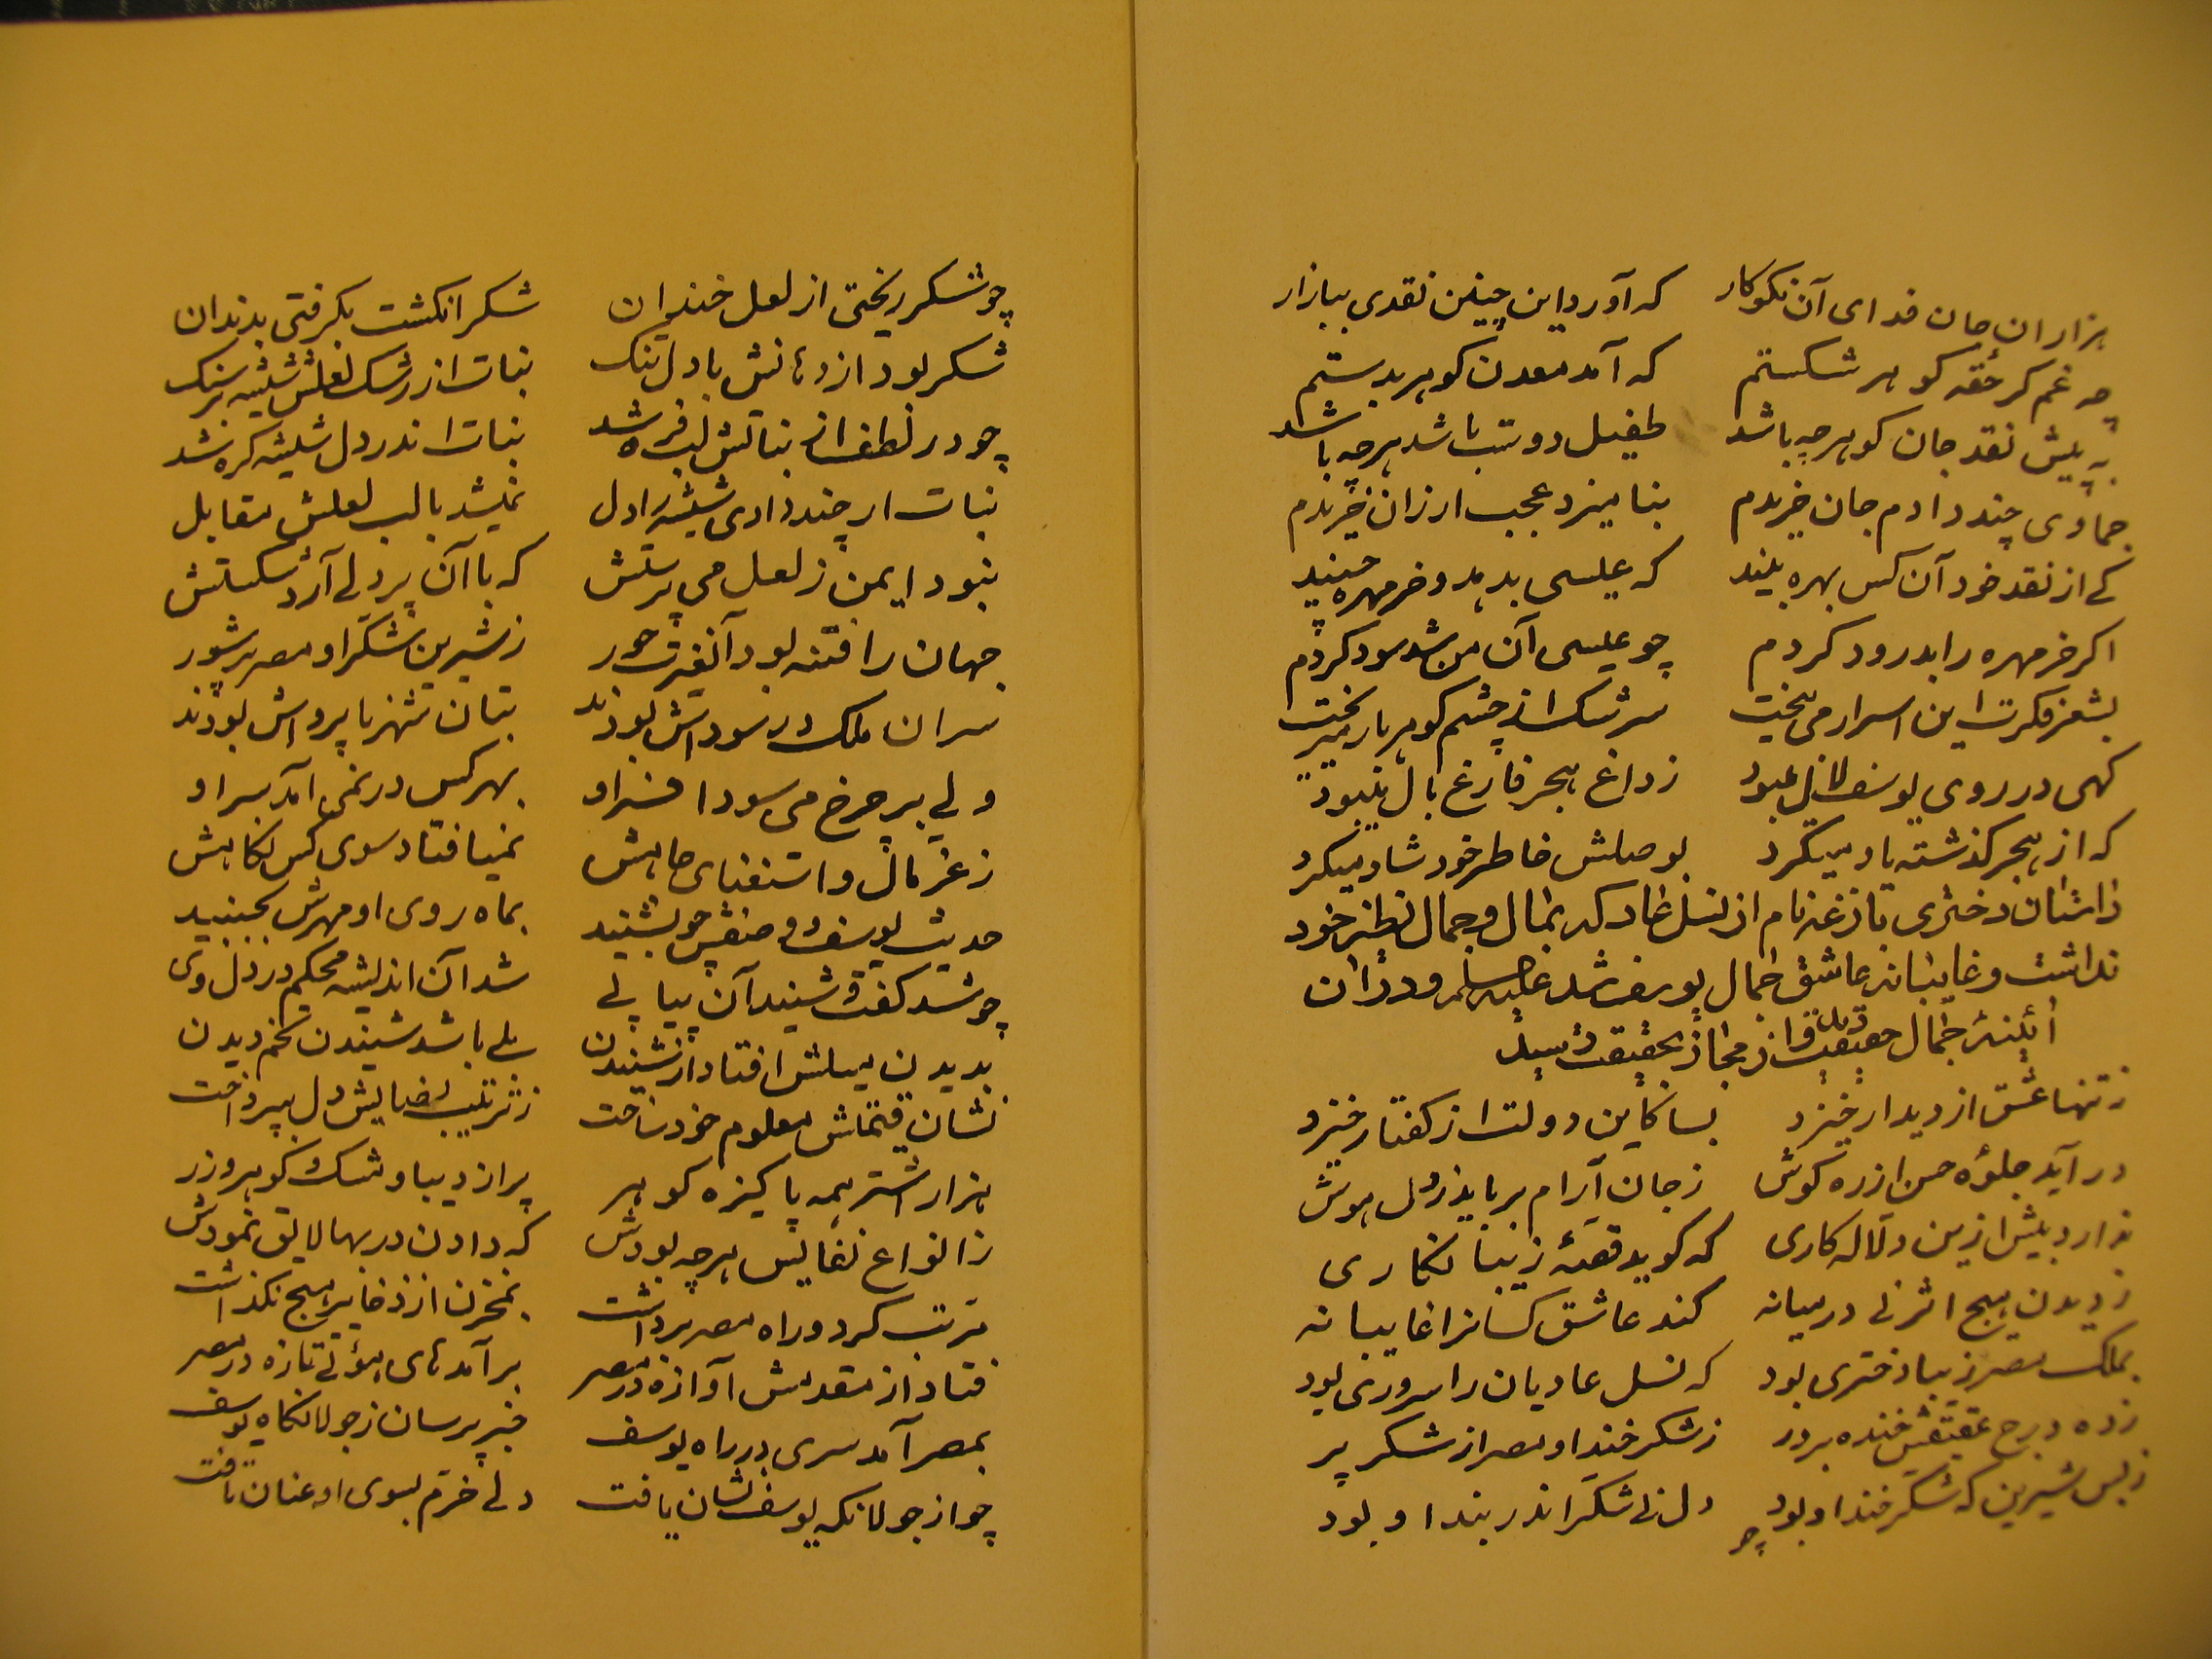 هزاران جان فدای آن نکوکار که آورد این چنین نقدی ببازار
چه غم گر حُقه گوهر شکستم که آمد معدن گوهر بدستم
به پیش نقد جان گوهر چه باشد طفیل دوست باشد هرچه باشد
جمادی چند دادم جان خریدم بنامیزد عجب ارزان خریدم
کے از نقد خود آن کس بهره بیند که عیسی بدهد و خرمهره چیند
اگر خرمهره را بدرود کردم چو عیسی آن من شد سود کردم
بشعر فکرت این اسرار می بیخت سرشک از چشم گوهربار میریخت
گهی در روی یوسف لال میبود ز داغ هجر فارغ بال میبود
که از هجر گذشته یاد میکرد بوصلش خاطر خود شاد میکرد
داستان دختری بازغه نام از نسل عاد که بمال و جمال نظیر خود
نداشت و غایبانه عاشق جمال یوسف شد علیه السلم و در ان
آئینهٔ جمال حقیقت دید و از مجاز بحقیقت رسید
نه تنها عشق از دیدار خیزد بسا کاین دولت از گفتار خیزد
در آید جلوهٔ حسن از ره گوش ز جان آرام برباید ز دل هوش
ندارد پیش ازین دلاله کاری که گوید قصهٔ زیبا نگاری
ز دیدن هیچ اثر نے در میانه کند عاشق کسانرا غایبانه
بملک مصر زیبا دختری بود که نسل عادیان را سروری بود
زده درج عقیقش خنده بر در ز شکر خند او مصر از شکر پر
ز بس شیرین که شکّر خند او بود دل نے شکّر اندر بند او بود
چو
چو شکر ریختی از لعل خندان شکر انگشت بگرفتی بدندان
شکر بود از دهانش با دل تنک نبات از رشک لعلش شیشه بر سنک
چو در لطف از نباتش لب فره شد نبات اندر دل شیشه گره شد
نبات ار چند دادی شیشه را دل نمیشد با لب لعلش مقابل
نبود ایمن ز لعل می پرستش که با آن پردلے آرد شکستش
جهان را فتنه بود آن غیرت حور ز شیرین شکّر او مصر پر شور
سران ملک در سوداش بودند بتان شهر ناپرواش بودند
ولے بر چرخ می سود افسر او بهر کس در نمی آمد سر او
ز عز مال و استغنای جاهش نمیافتاد سوی کس نگاهش
حدیث یوسف و وصفش چو بشنید بماه روی او مهرش بجنبید
چو شد گفت و شنید آن پیاپے شد آن اندیشه محکم در دل وی
بدیدن میلش افتاد از شنیدن بلے باشد شنیدن تخم دیدن
نشان قیمتش معلوم خود ساخت ز ترتیب بضایش دل بپرداخت
هزار اشتر همه پاکیزه گوهر پر از دیبا و مشک و گوهر و زر
ز انواع نفایس هرچه بودش که دادن در بها لایق نمودش
مرتب کرد و راه مصر برداشت بمخزن از ذخایر هیچ نگذاشت
فتاد از مقدمش آوازه در مصر بر آمد های هوئے تازه در مصر
بمصر آمد سری در راه یوسف خبر پرسان ز جولانگاه یوسف
چو از جولانگه یوسف نشان یافت دلے خرّم بسوی او عنان تافت